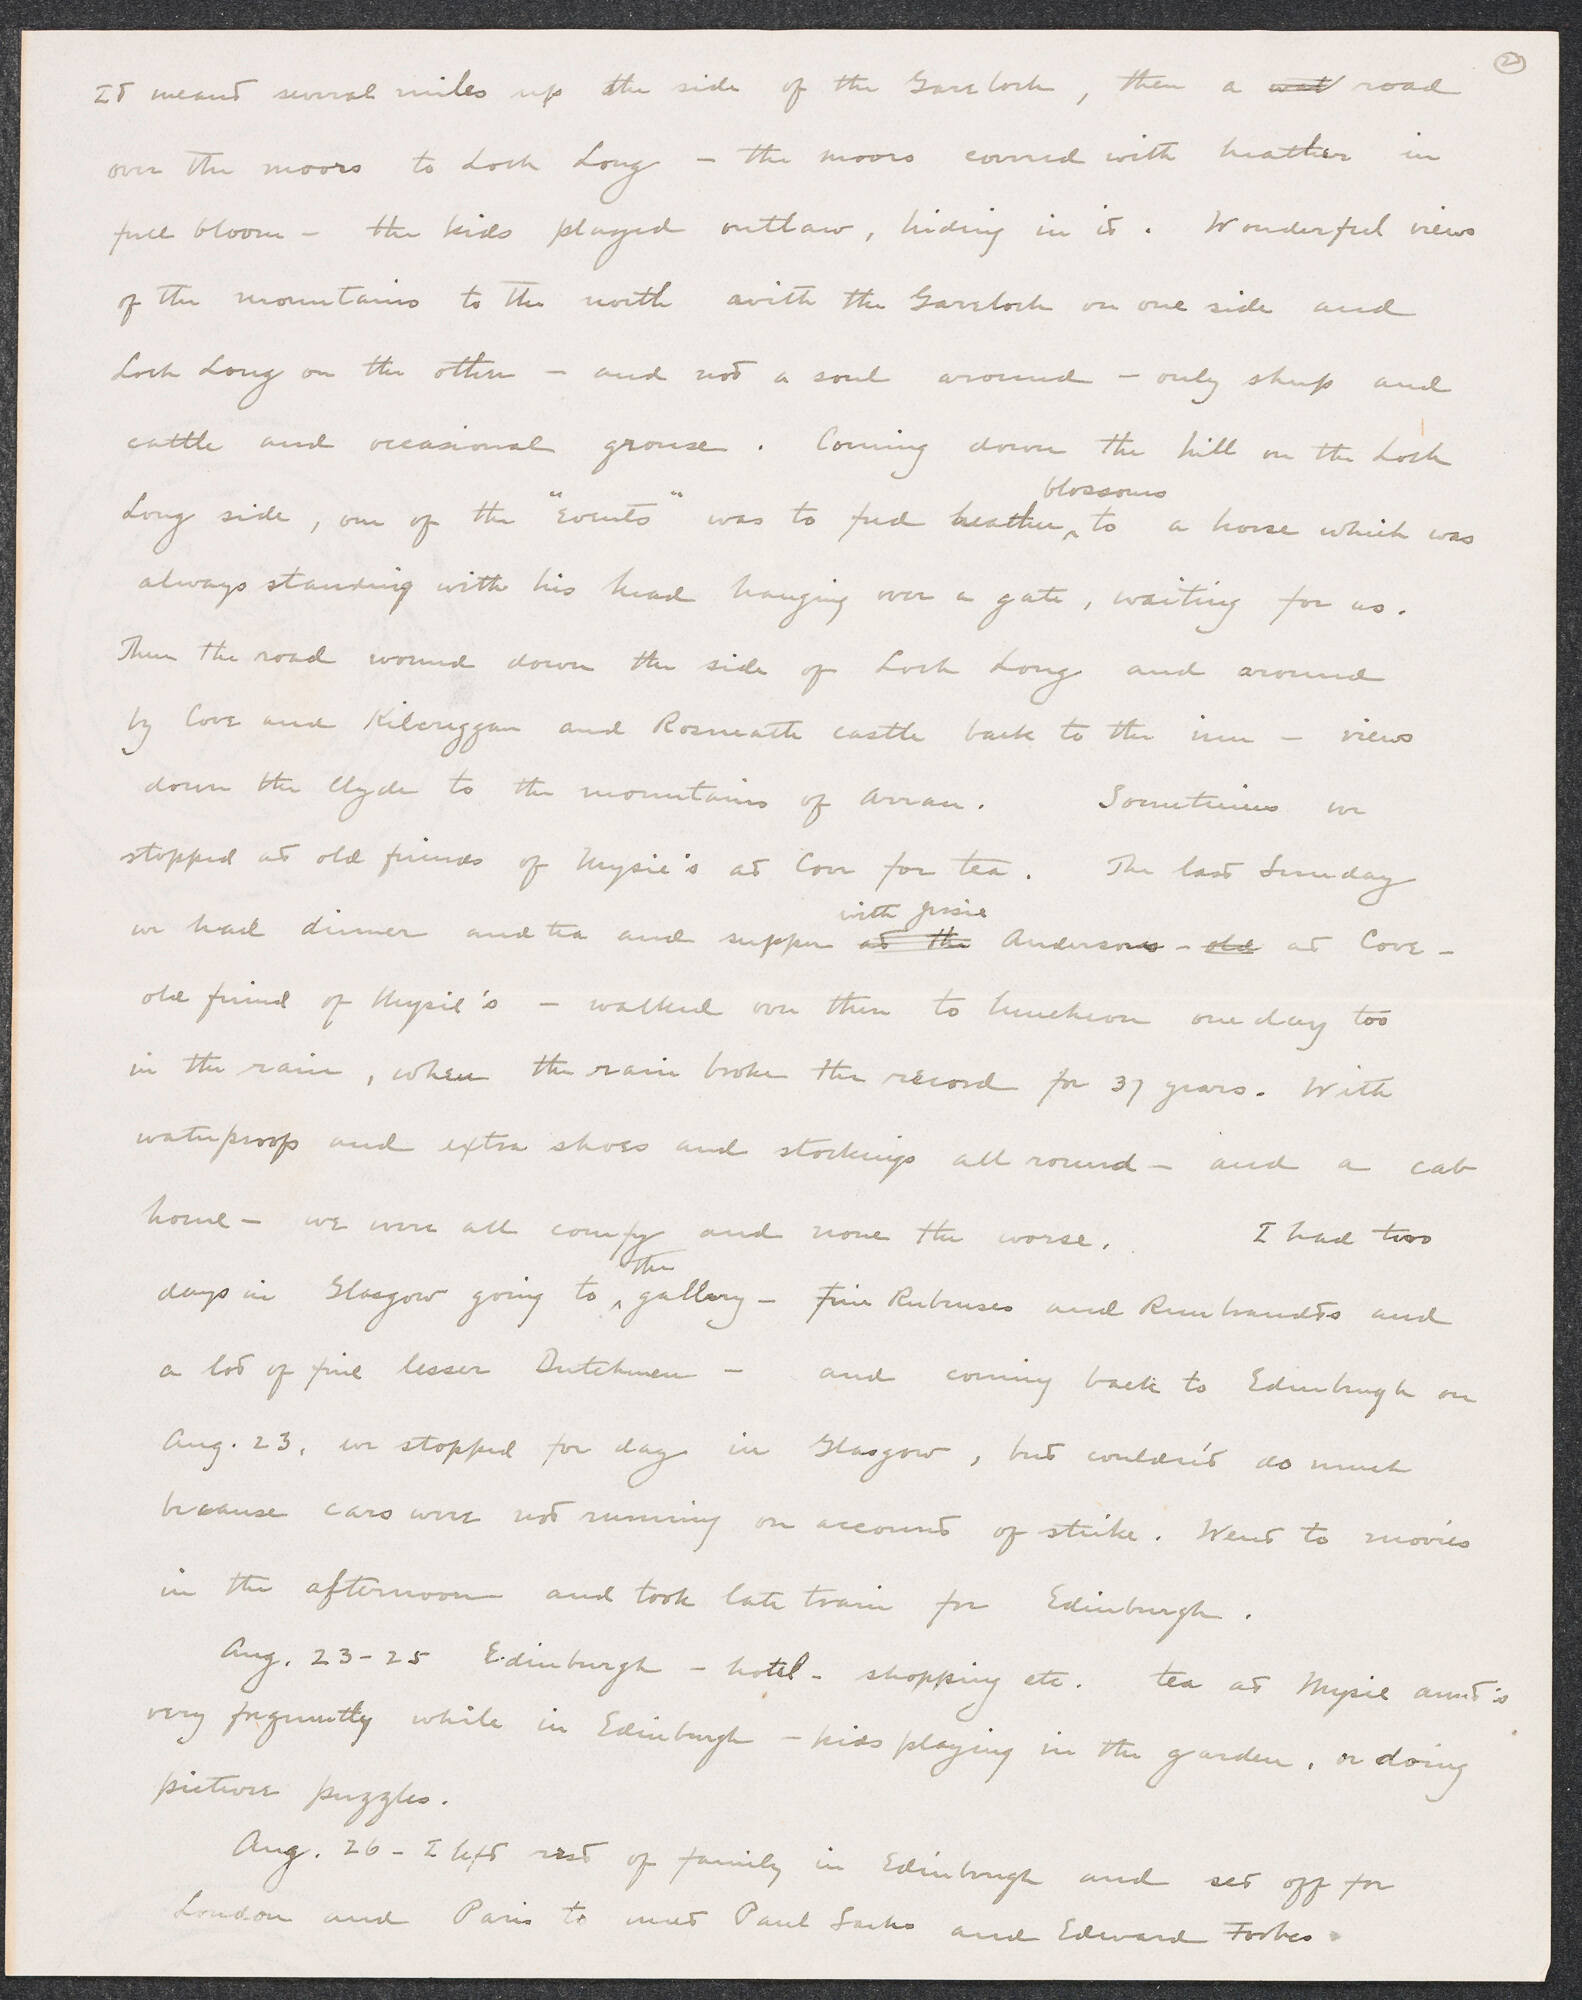 20
It meant several miles up the side of the Gareloch, then a road
over the moors to Loch Long – the moors covered with heather in
full bloom – the kids played outlaw, hiding in it. Wonderful views
of the mountains to the north with the Gareloch on one side and
Loch Long on the other – and not a soul around – only sheep and
cattle and occasional grouse. Coming down the hill on the Loch
blossoms
Long side, one of the "Events" was to feed heather ^ to a horse which was
always standing with his head hanging over a gate, waiting for us.
Then the road wound down the side of Loch Long and around
by Cove and Kilcreggan and Rosneath castle back to the inn – views
down the Clyde to the mountains of Arran. Sometimes we
stopped at old friends of Mysie's at Cove for tea. The last Sunday
with Jessie
we had dinner and tea and supper at the Andersons – old at Cove –
old friend of Mysie's – walked over there to luncheon one day too
in the rain, when the rain broke the record for 37 years. With
waterproofs and extra shoes and stockings all round – and a cab
home – we were all comfy and none the worse. I had two
the
days in Glasgow going to ^ gallery – Fine Rubenses and Rembrandts and
a lot of fine lesser Dutchmen – and coming back to Edinburgh on
Aug. 23, we stopped for day in Glasgow, but couldn't do much
because cars were not running on account of strike. Went to movies
in the afternoon and took late train for Edinburgh.
Aug. 23-25 Edinburgh – hotel – shopping etc. tea at Mysie aunt's
very frequently while in Edinburgh – kids playing in the garden, or doing
picture puzzles.
Aug. 26 – I left rest of family in Edinburgh and set off for
London and Paris to meet Paul Sachs and Edward Forbes.